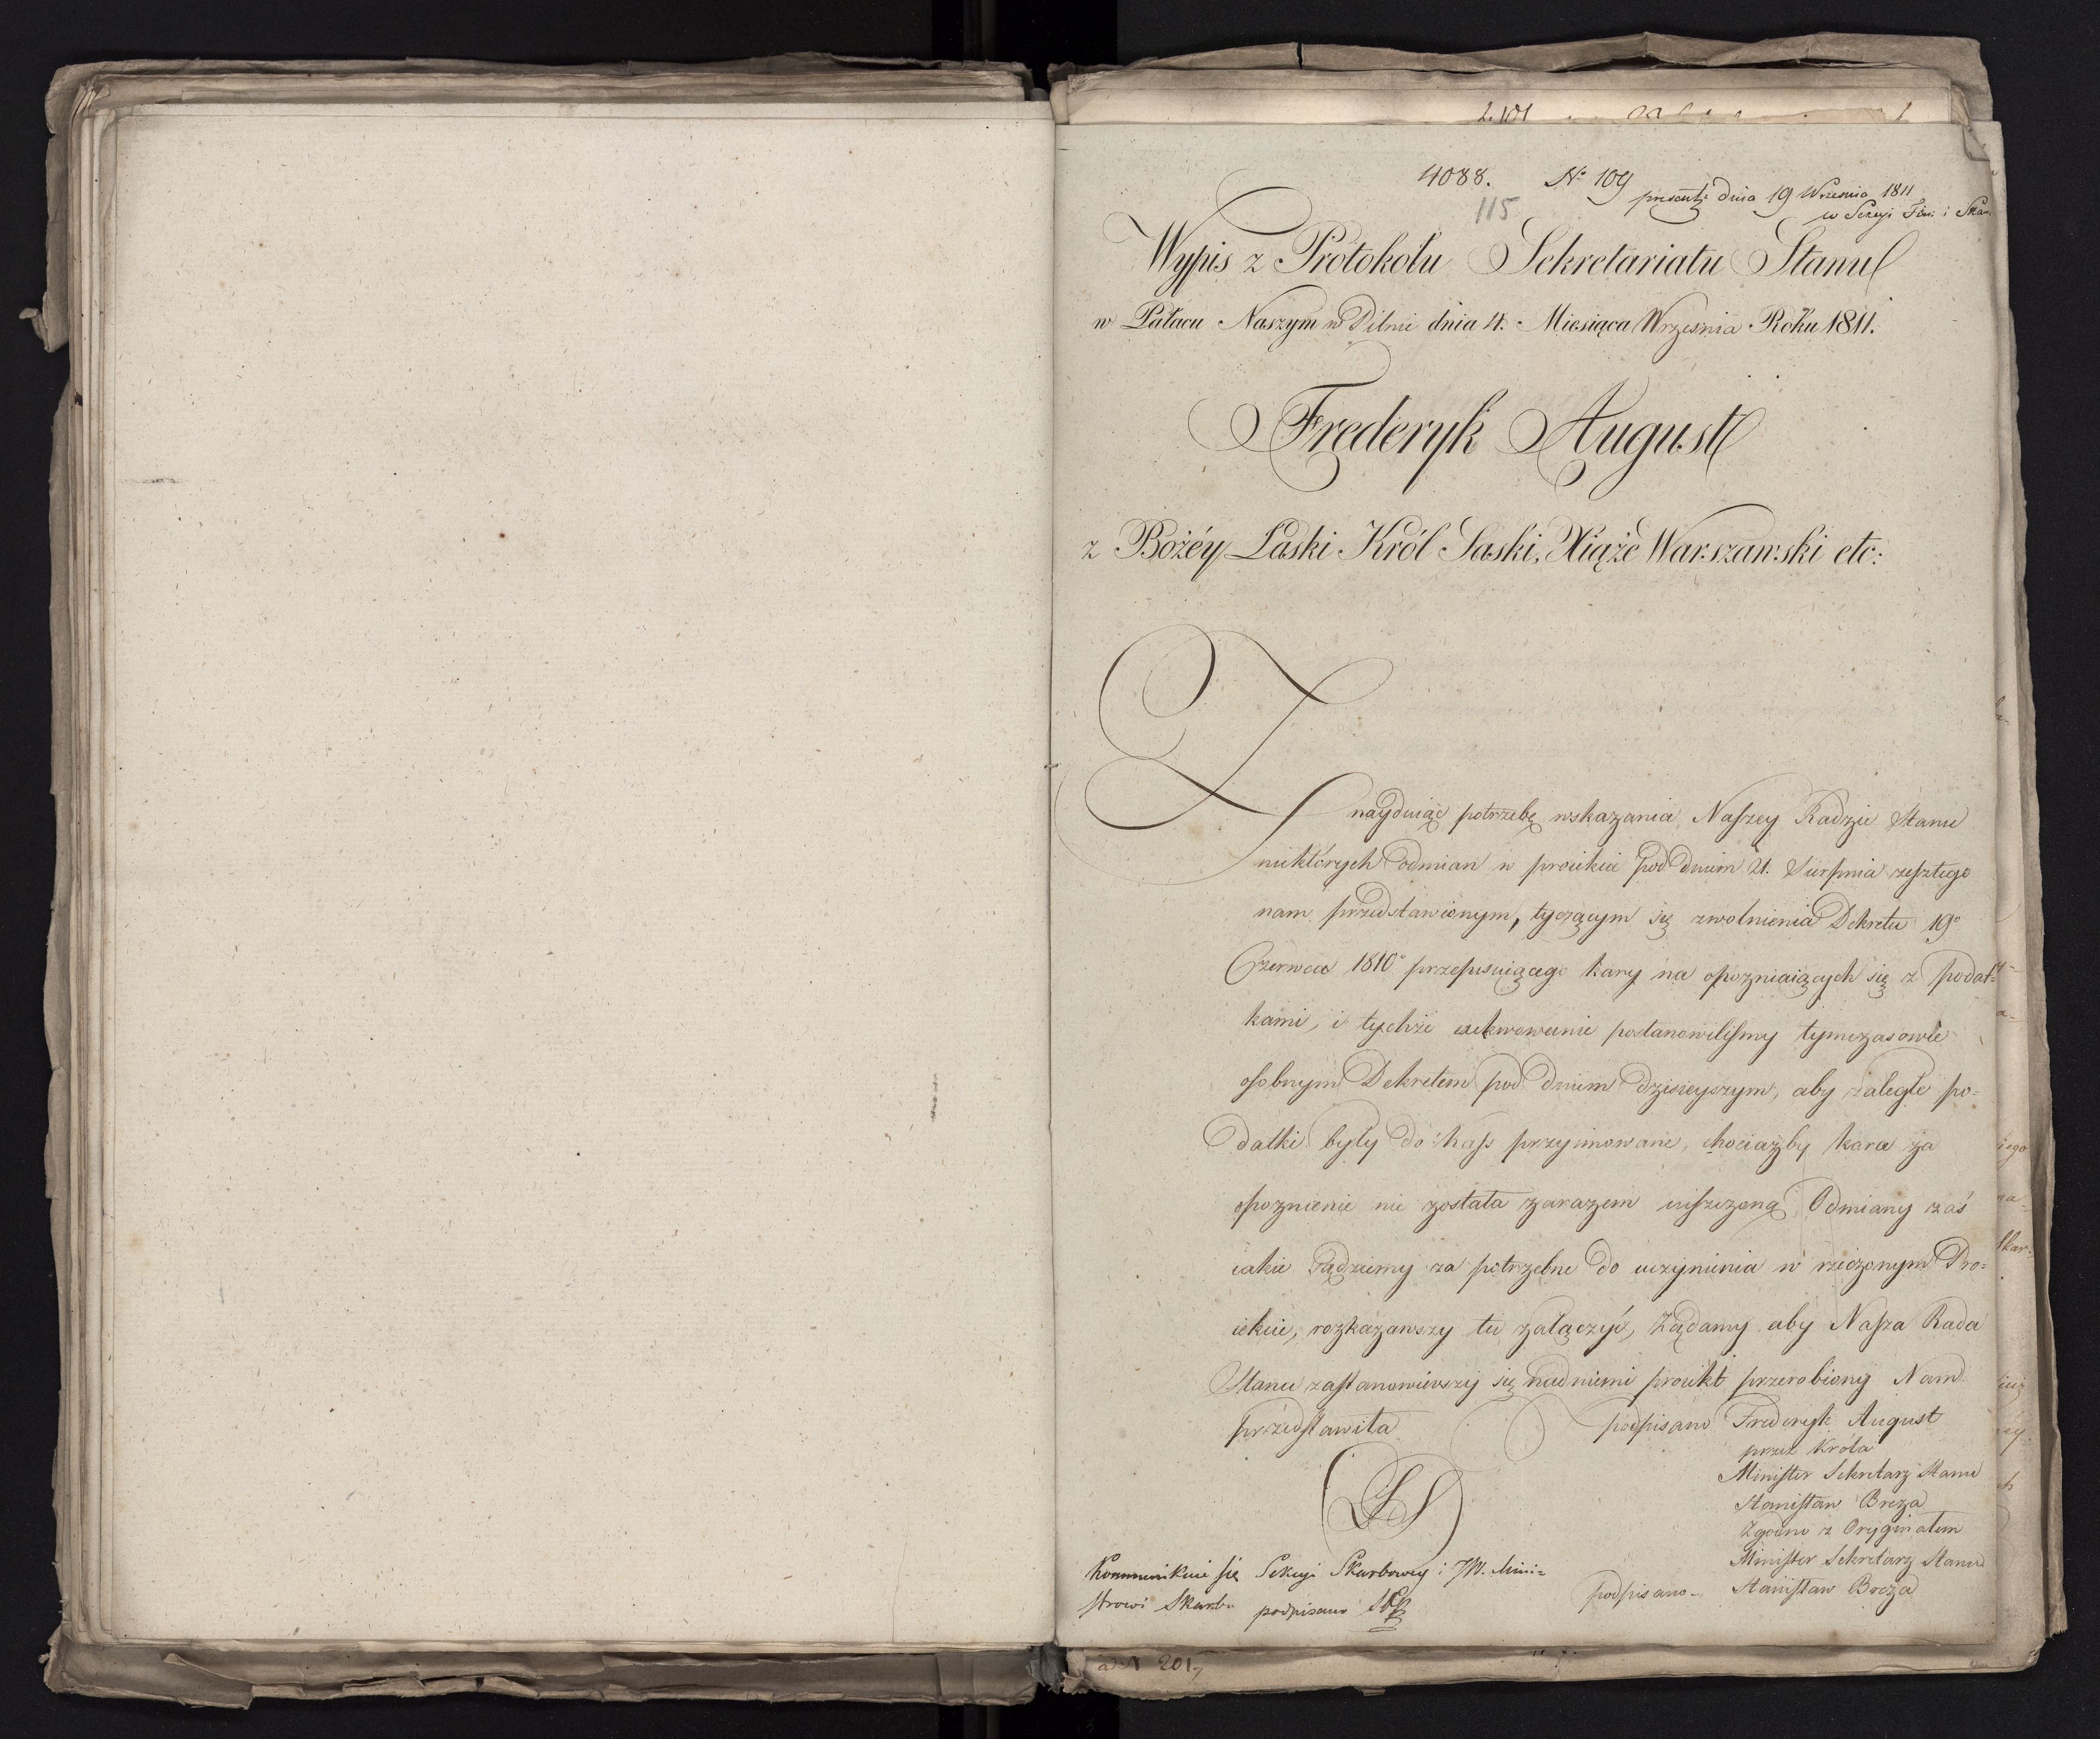 4088. Nº 109
115
presentt: dnia 19 Września 1811
w Sekcyi Fin: i Skar:
Wypis z Protokołu Sekretariatu Stanu
w Pałacu Naszym w Pilnic dnia 4. Miesiąca Września Roku 1811.
Frederyk August
z Bożéy Łaski Król Saski, Xiąże Warszawski etc:
Znayduiąc potrzebę wskazania Naszey Radzie Stanu
niektórych odmian w proiekcie pod dniem 21. Sierpnia zeszłego
nam przedstawionym, tyczącym się zwolnienia Dekretu 19º
Czerwca 1810º przepisuiącego kary na opozniaiących się z podat=
kami, i tychże exekwowanie postanowiliśmy tymczasowie
osobnym Dekretem pod dniem dzisieyszym, aby zaległe po=
datki były do kass przyimowane, chociażby kara za
opoznienie nie została zarazem uiszczoną Odmiany zaś
iakie sądziemy za potrzebne do uczynienia w rzeczonym Pro=
iekcie, rozkazawszy tu załączyć, Żądamy aby Nasza Rada
Stanu zastanowiwszy się nad niemi proiekt przerobiony Nam
przedstawiła
podpisano Frederyk August
przez Króla
Minister Sekretarz Stanu
Stanisław Breza
Zgodno z Oryginałem
Minister Sekretarz Stanu
podpisano – Stanisław Breza
LS
Kommunikuie się Sekcyi Skarbowey i JW. Mini=
strowi Skarbu podpisano
ad N 201